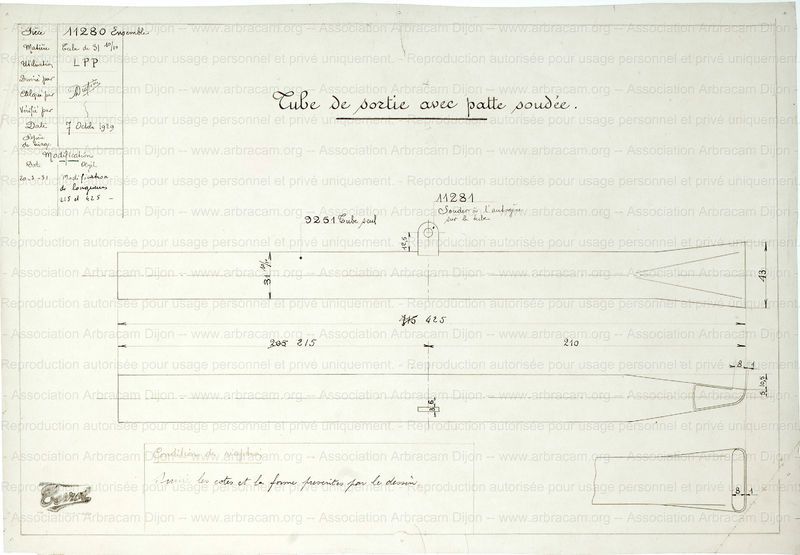 Pièce 11280 Ensemble
Matière Tube de 31 10/10
Utilisation LPP
Dessiné par
Calqué par
Vérifié par
Date 7 Octobre 1929
Modification
Date Objet
20-3-31 Modification
de longueurs
215 et 425
Tube de sortie avec patte soudée.
11281
Souder à l'autogène
sur le tube
9251 Tube seul
12,5
31 10/10
43
415 425
205 215
210
8 1
5 10,5
3 6
8 1
Conditions de
les cotes et la forme presentées par le dessin
Terrot
Association Arbracam Dijon -- www.arbracam.org -- Association Arbracam Dijon -- www.arbracam.org
Reproduction autorisée pour usage personnel et privé uniquement.